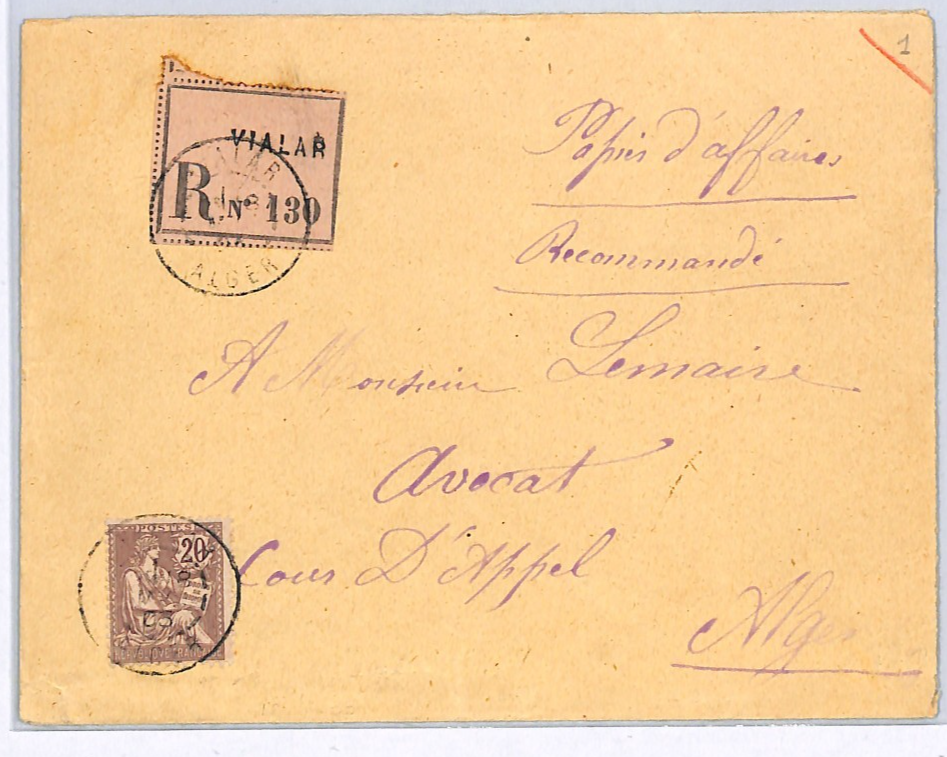 1
VIALAR
R. No 130
VIALAR
ALGER
Papiers d'affaires
Recommandé
A Monsieur Lemaire
Avocat
Cour D'Appel
Alger
POSTES
20
REPUBLIQUE FRANCAISE
03